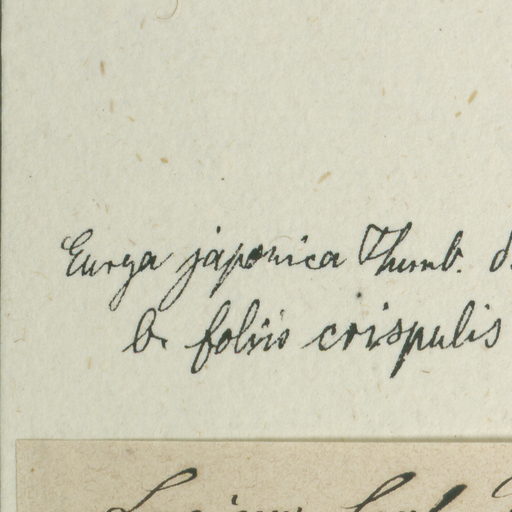 Eurya japonica Thunb.
b. foliis crispulis